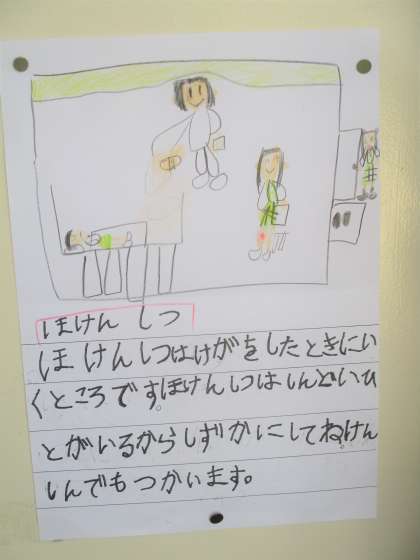 ほけん しつ
ほけんしつはけがをしたときにい
くところです。ほけんしつはしんどいひ
とがいるからしずかにしてね。けん
しんでもつかいます。